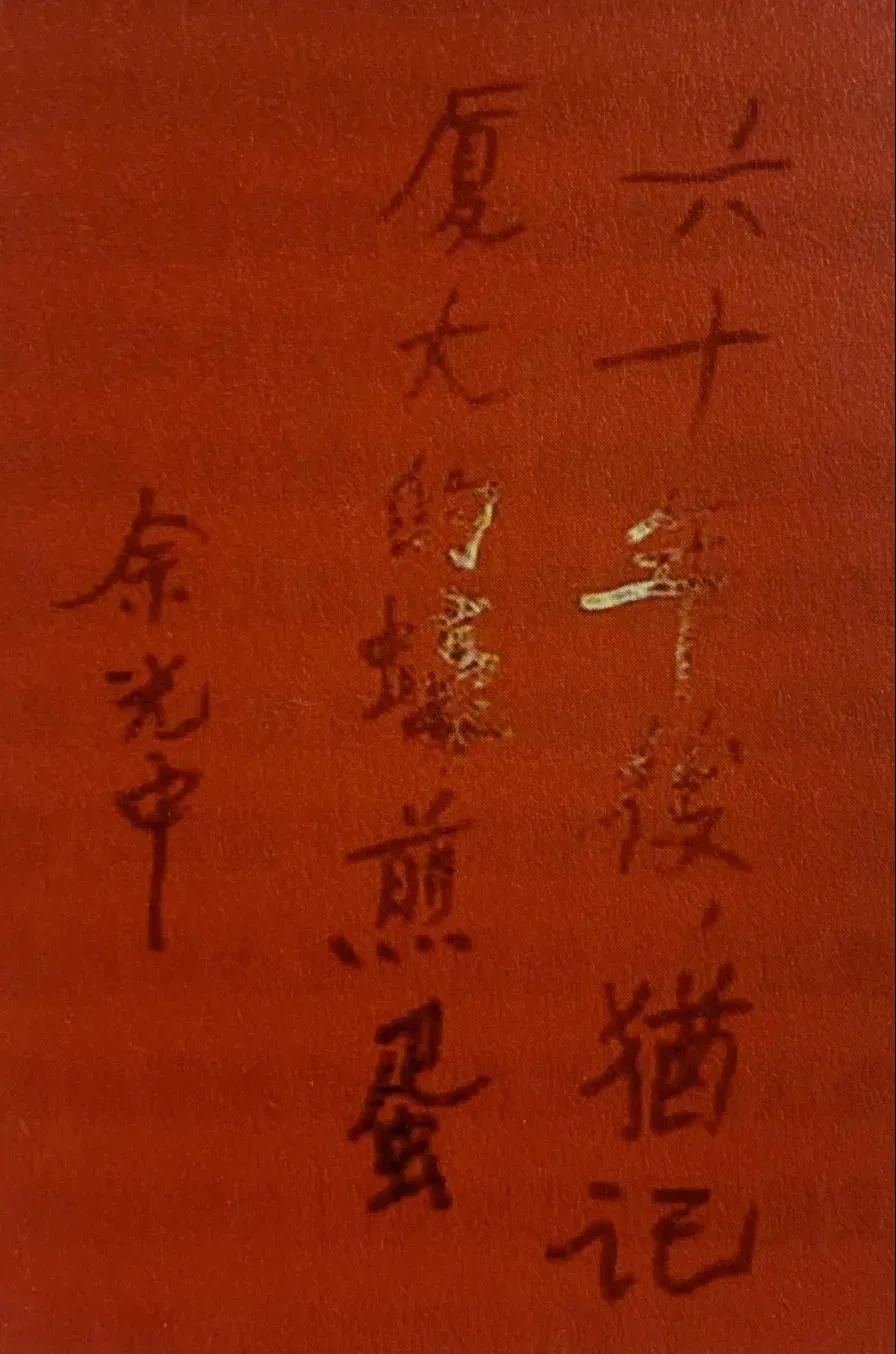 六十年後猶记
厦大的蠔煎蛋
余光中